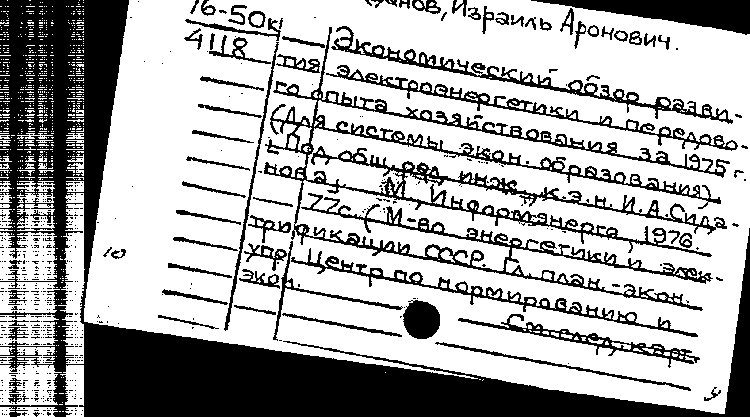 Израиль Аронович.
76-50к
4118
Экономический обзор разви-
тия электроэнергетики и передово-
го опыта хозяйствования за 1975 г.
(Для системы экон. образования)
[Под общ. ред. инж., к.э.н. И.А. Сида-
нова]. М., Информэнерго, 1976.
77с. (М-во энергетики и элек-
трификации СССР. Гл. план.-экон.
упр. Центр по нормированию и
экон.
См. след. карт.
10